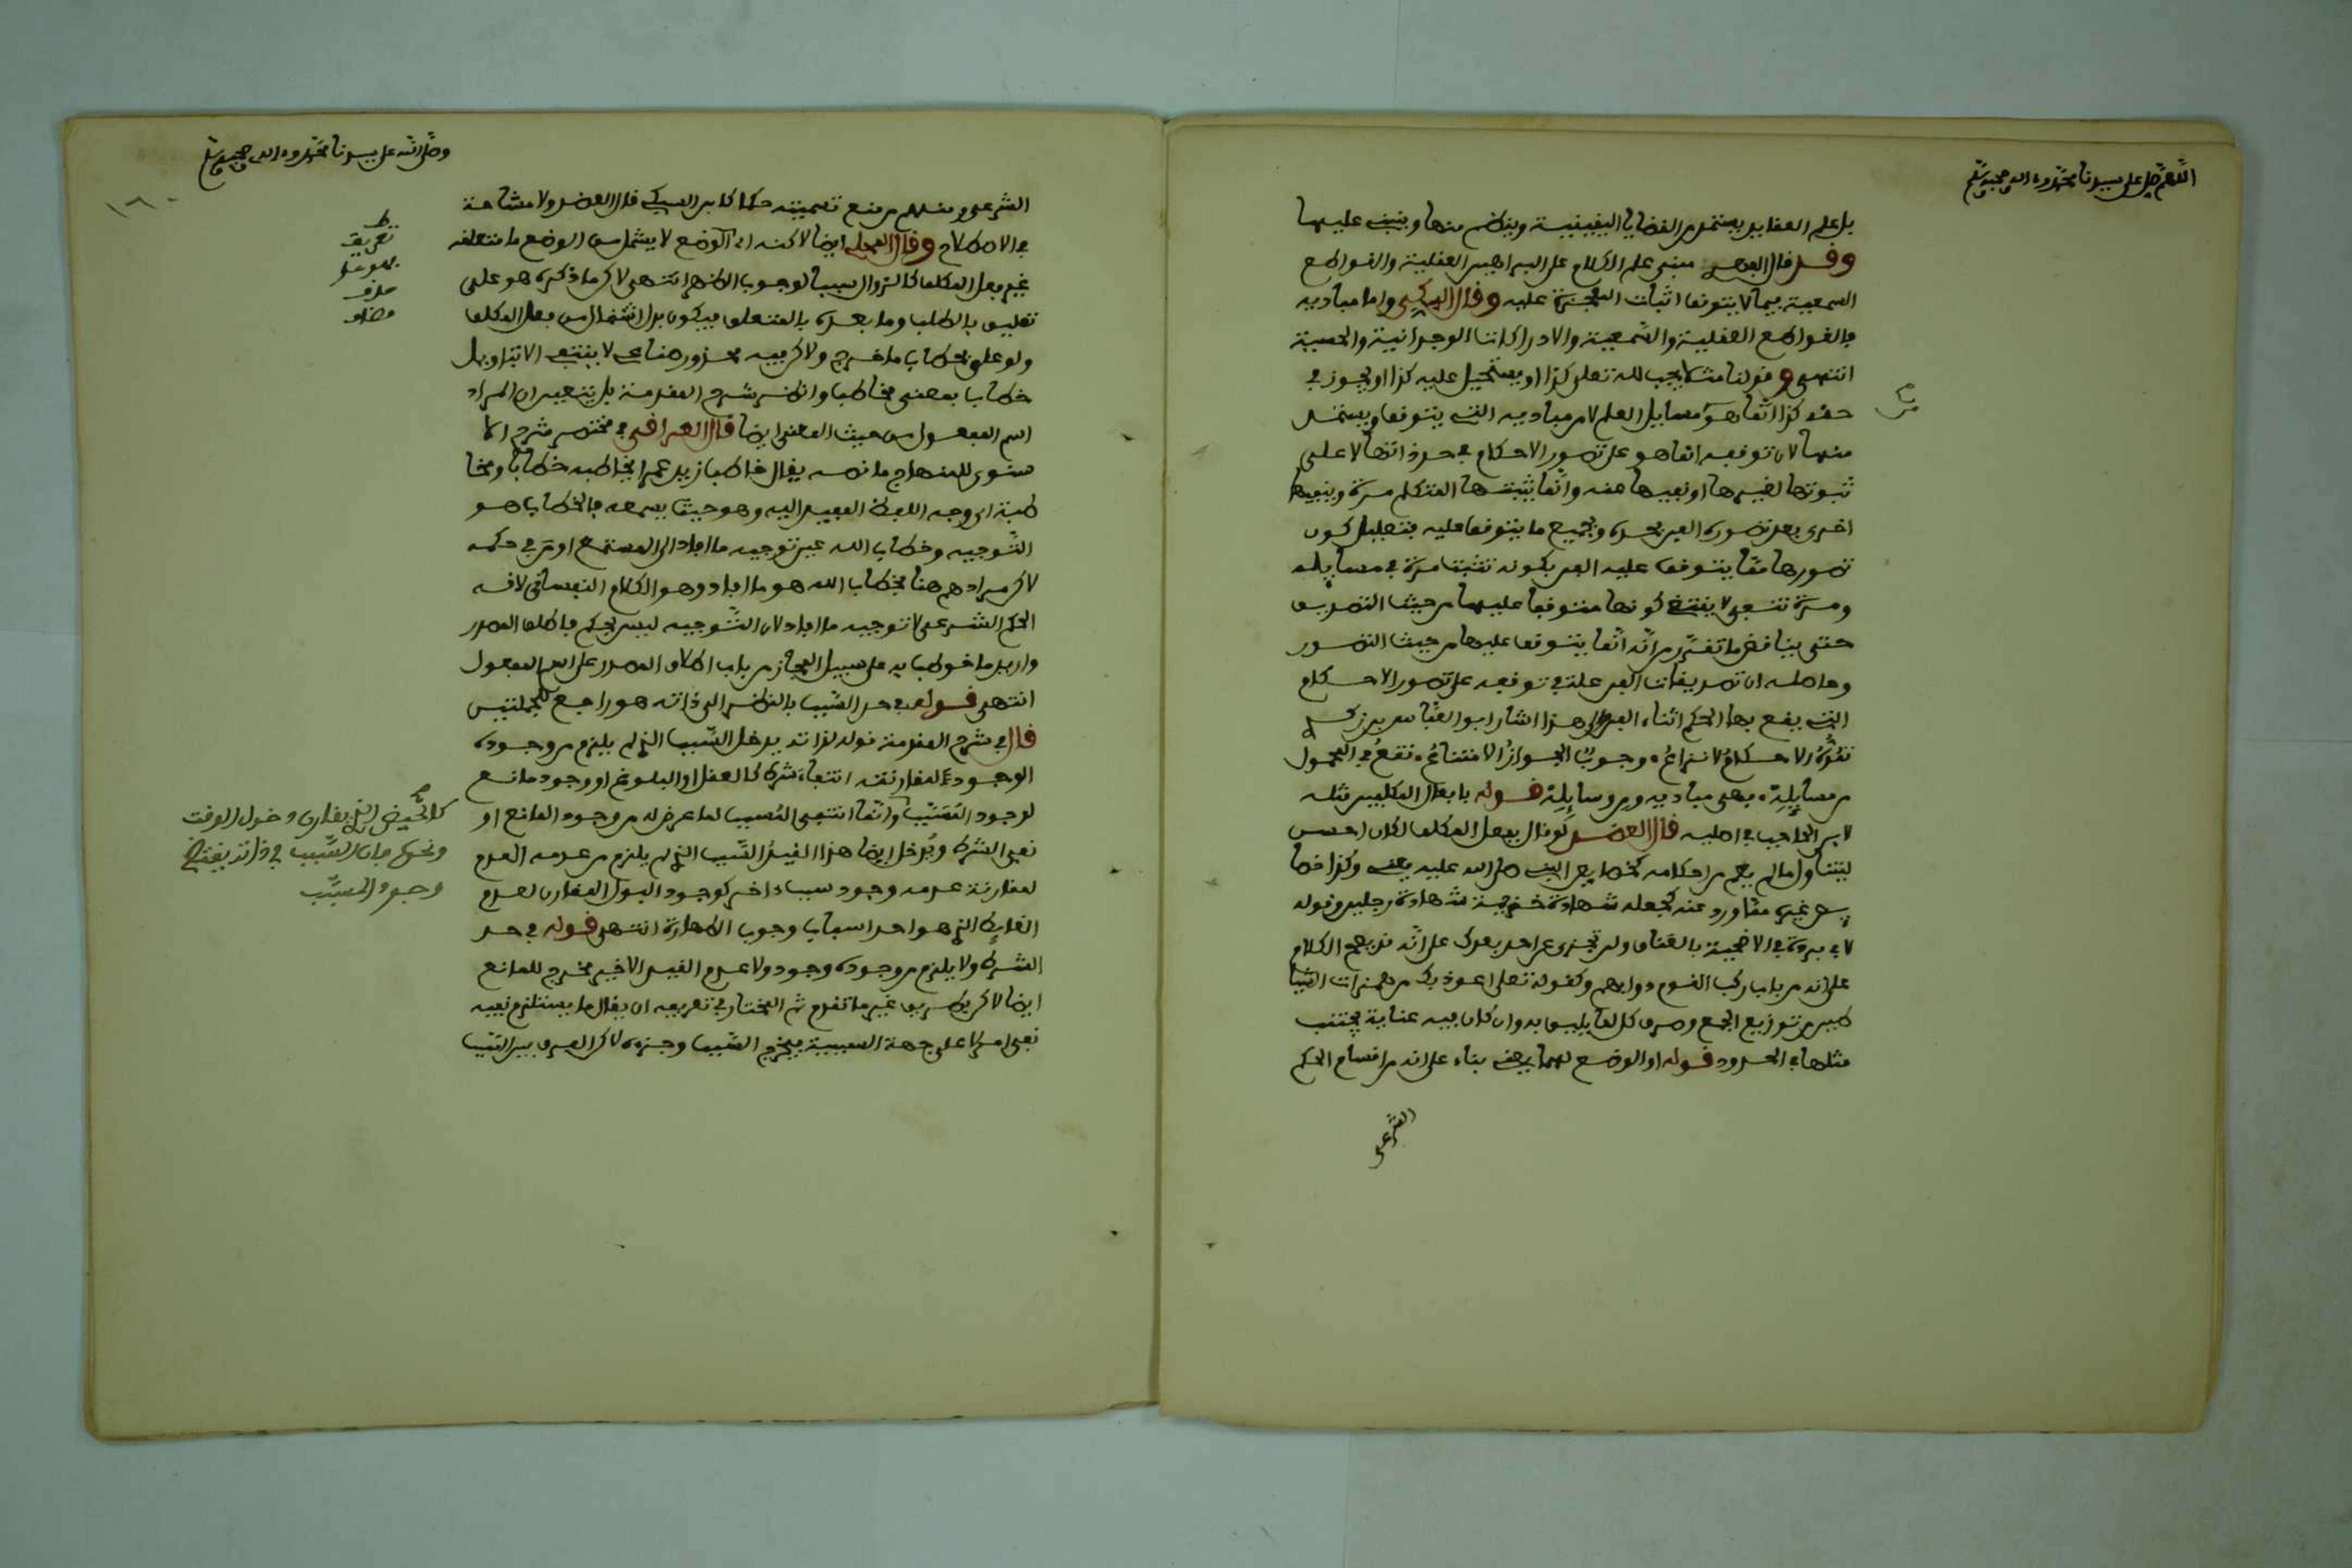 اللهم صل على سيدنا محمد وءاله وصحبه وسلم
بل علم العقايد يستمد من القضايا اليقينية وينظر منها وينبني عليها
وقد قال الفهري مبنى علم الكلام على البراهين العقلية والقواطع
السمعية فيما لا يتوقف اثبات المعجزة عليه وقال السكتي واما مباديه
فالقواطع العقلية والسمعية والادراكات الوجدانية والحسية
انتهى وقولنا مثلا يجب لله تعلى كذا او يستحيل عليه كذا او يجوز في
حقه كذا انما هو مسايل العلم لا من مباديه التي يتوقف ويستمد
منها لان توقفه انما هو على تصور الاحكام في حد ذاتها لا على
ثبوتها لغيرها او نفيها عنه وانما يثبتها المتكلم مرة وينفيها
اخرى بعد تصوره الفن بحده وبجميع ما يتوقف عليه فتعليل كون
تصورها مما يتوقف عليه الفن بكونه تثبت مرة في مسايله
ومرة تنتفي لا يقتضي كونها متوقفا عليها من حيث التصديق
حتى يناقض ما تقرر من انه انما يتوقف عليها من حيث التصور
وحاصله ان تصديقات الفن علة في توقفه على تصور الاحكام
التي يقع بها الحكم اثناء الفن والى هذا اشار ابو العباس بن زكري
تقرر الاحكام لا نزاع، وجوب الجواز الامتناع، تقع في المحمول
من مسايله، فهي مباديه ومن وسايله قوله بافعال المكلفين مثله
لابن الحاجب في اصليه قال العضد لو قال بفعل المكلف لكان احسن
ليتناول ما لم يعم من احكامه كخصايص النبي صلى الله عليه يعني وكذا خصا
يص غيره مما ورد عنه كجعله شهادة خزيمة شهادة رجلين وقوله
لابي بردة في الاضحية بالعناق ولن تجزي عن احد بعدك على انه قد يصح الكلام
على انه من باب ركب القوم دوابهم وكقوله تعلى اعوذ بك من همزات الشيا
طين من توزيع الجمع وصرف كل لما يليق به وان كان فيه عناية يجتنب
مثلها في الحدود قوله او الوضع لهما يعني بناء على انه من اقسام الحكم
الشرعي
وصلى الله على سيدنا محمد وءاله وصحبه وسلم
١٦٠
الشرعي ومنهم من منع تسميته حكما كابن السبكي قال العضد ولا مشاحة
في الاصطلاح وقال المحلي ايضا لاكنه اي الوضع لا يشمل من الوضع ما متعلقه
غير فعل المكلف كالزوال سببا لوجوب الظهر انتهى لاكن ما ذكره هو على
تعليق بالطلب وما بعده بالمتعلق فيكون بدل اشتمال من فعل المكلف
ولو علق بخطاب ما خرج ولاكن فيه محذور صناعي لا ينتفي الا بتاويل
خطاب بمعنى مخاطب وانظر شرح المقدمة بل يتعين ان المراد
اسم المفعول من حيث المعنى ايضا قال العراقي في مختصر شرح الا
سنوي للمنهاج ما نصه يقال خاطب زيد عمرا يخاطبه خطابا ومخا
طبة اي وجه اللفظ المفيد اليه وهو حيث يسمعه فالخطاب هو
التوجيه وخطاب الله عبر توجيه ما افاد الى المستمع او من في حكمه
لاكن مرادهم هنا بخطاب الله هو ما افاد وهو الكلام النفساني لانه
الحكم الشرعي لا توجيه ما افاد لان التوجيه ليس بحكم فاطلق المصدر
واريد ما خوطب به على سبيل المجاز من باب اطلاق المصدر على اسم المفعول
انتهى قوله في حد السبب بالنظر الى ذاته هو راجع للجملتين
قال في شرح المقدمة قوله لذاته يدخل السبب الذي لم يلزم من وجوده
الوجود لمقارنته انتفاء شرط كالعقل او البلوغ او وجود مانع
لوجود المسبب وانما انتفى المسبب لما عرض له من وجود المانع او
نفي الشرط ويدخل ايضا هذا القيد السبب الذي لم يلزم من عدمه العدم
لمقارنة عدمه وجود سبب ءاخر كوجود البول المقارن لعدم
الغايط الذي هو احد اسباب وجوب الطهارة انتهى قوله في حد
الشرط ولا يلزم من وجوده وجود ولا عدم القيد الاخير مخرج للمانع
ايضا لاكن بطريق غير ما تقدم ثم المختار في تعريفه ان يقال ما يستلزم نفيه
نفي امر لا على جهة السببية فيخرج السبب وجزءه لاكن الفرق بين السبب
تعريف
كالحيض الذي يقارن دخول الوقت
ونحوه فان السبب في ذاته يقتضي
وجود المسبب